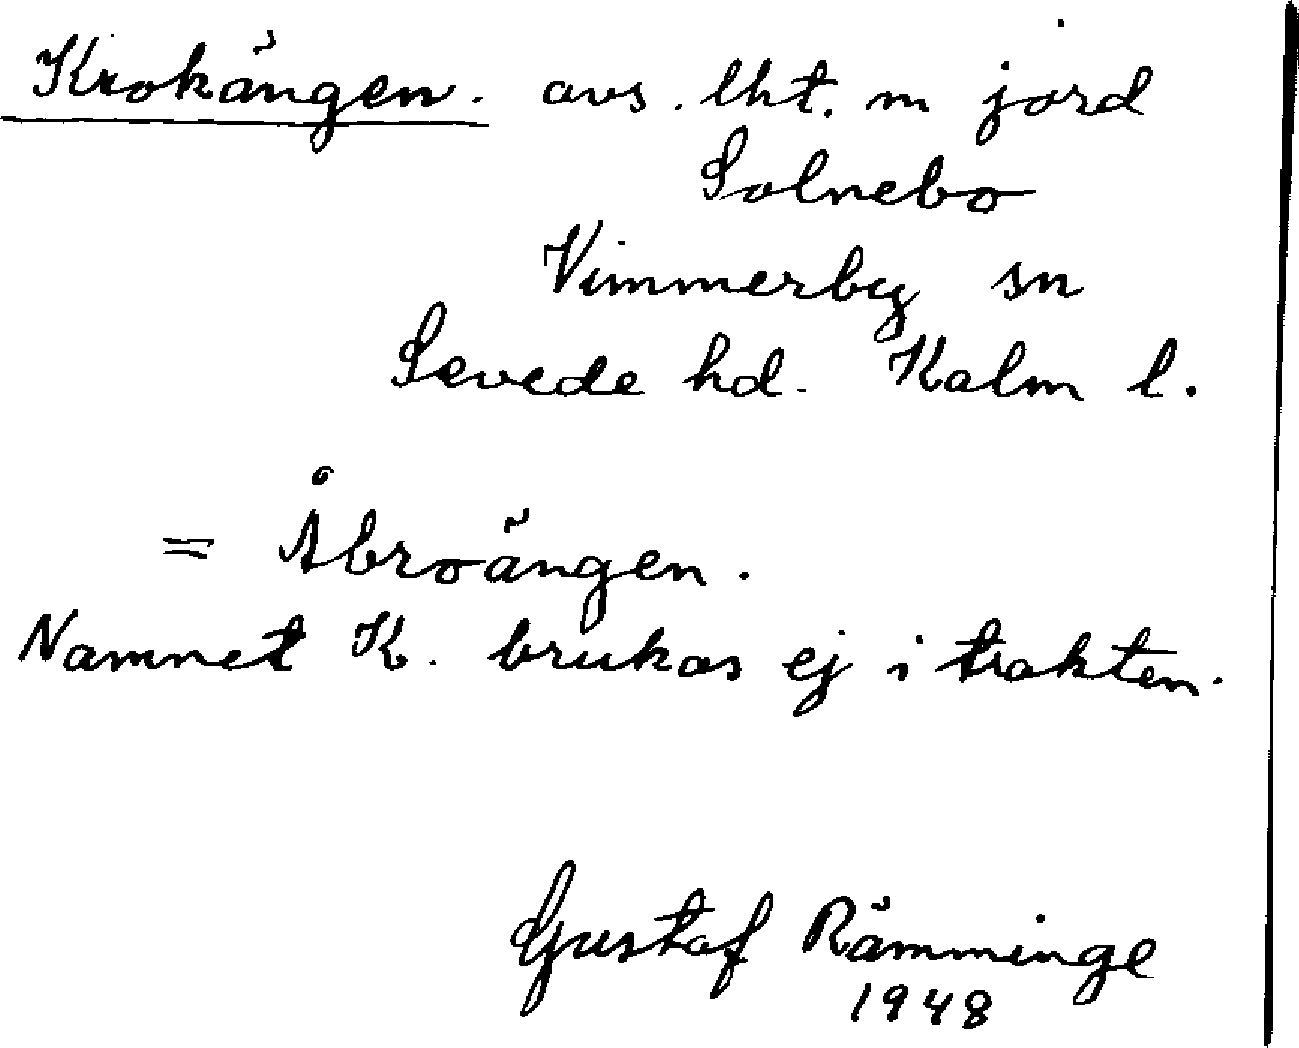 Krokängen. avs. lht. m jord
Solnebo
Vimmerby sn
Sevede hd. Kalm l.
= Åbroängen.
Namnet K. brukas ej i trakten.
Gustaf Rämminge
1948